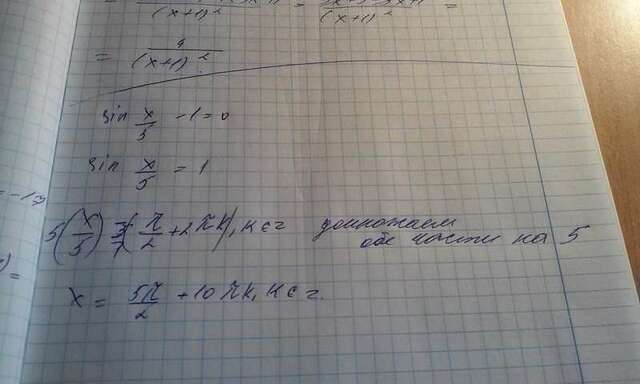 = 4/(x+1)²
sin x/5 - 1 = 0
sin x/5 = 1
5(x/5) = (π/2 + 2πk), k ∈ z домножаем
обе части на 5
x = 5π/2 + 10πk, k ∈ z.